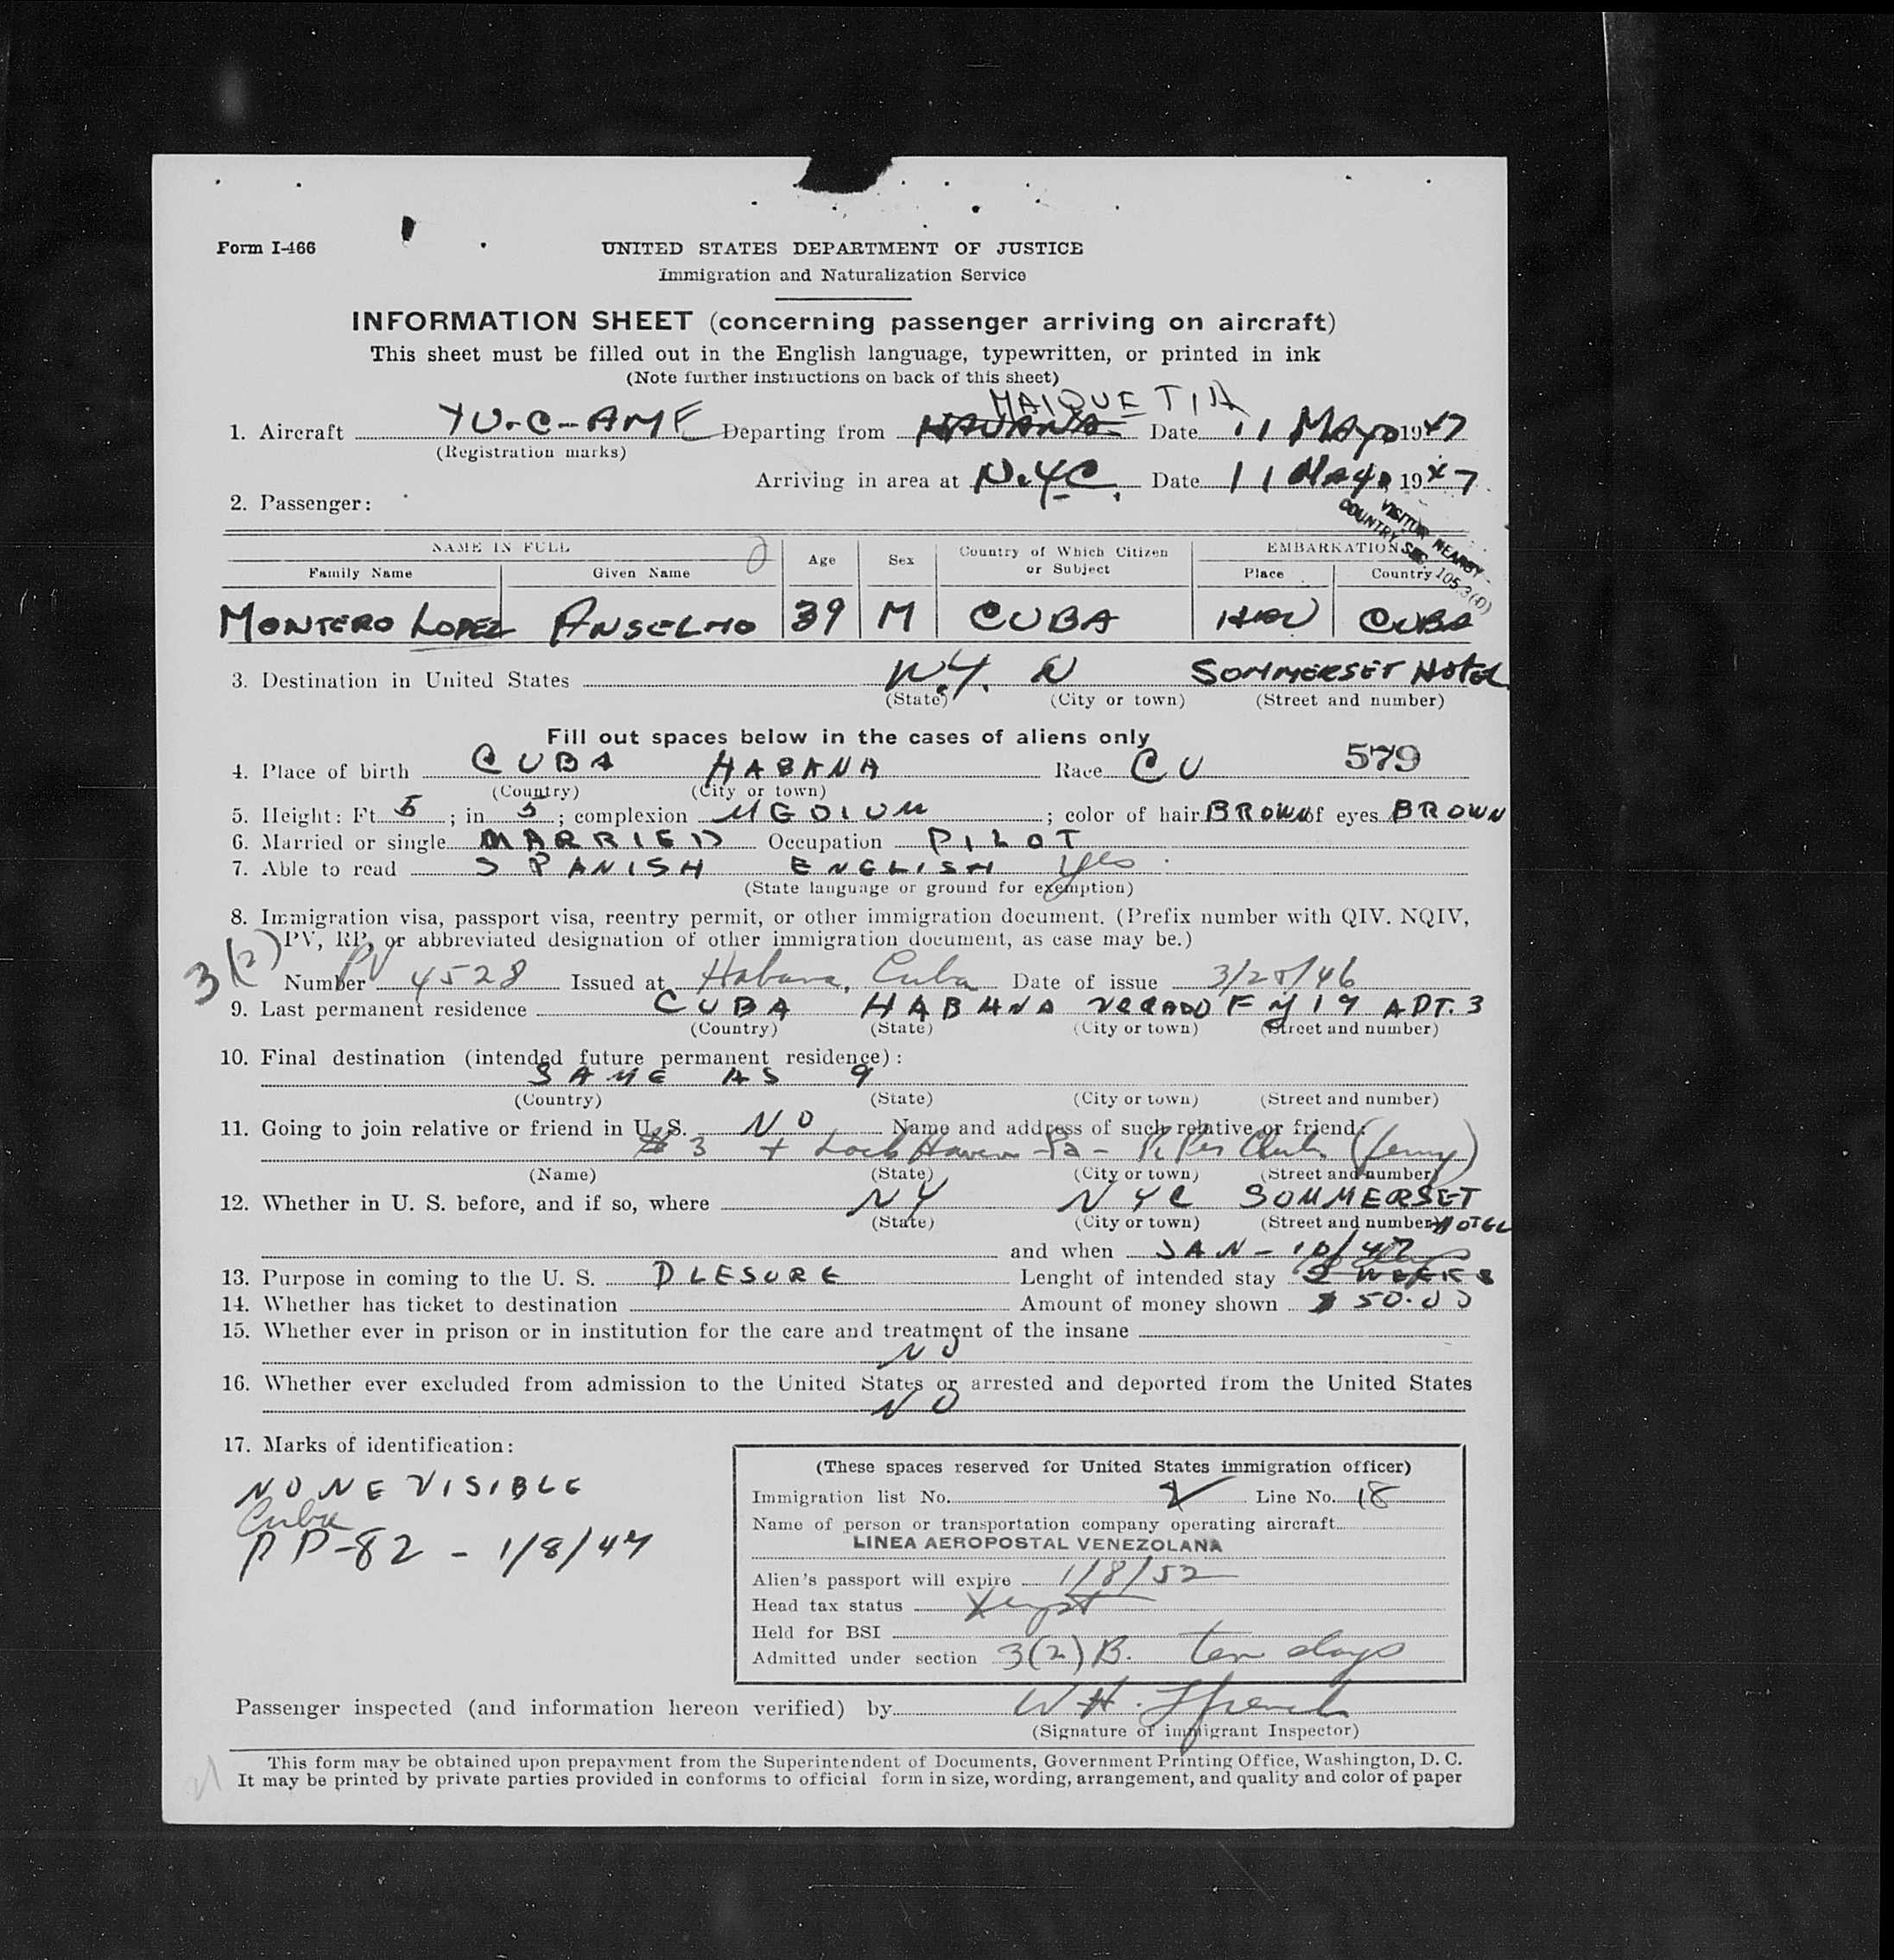 Form I-466
UNITED STATES DEPARTMENT OF JUSTICE
Immigration and Naturalization Service
INFORMATION SHEET (concerning passenger arriving on aircraft)
This sheet must be filled out in the English language, typewritten, or printed in ink
(Note further instructions on back of this sheet)
MAIQUETIA
1. Aircraft YU-C-AME Departing from HAVANA Date 11 MAYO 1947
(Registration marks)
Arriving in area at N.Y.C. Date 11 Mayo 1947
2. Passenger:
VISITOR NEARBY
COUNTRY SEC. 105.3(D)
NAME IN FULL Age Sex Country of Which Citizen or Subject EMBARKATION
Family Name Given Name Place Country
MONTERO LOPEZ ANSELMO 39 M CUBA HAV CUBA
3. Destination in United States N.Y. N SOMMERSET HOTEL
(State) (City or town) (Street and number)
Fill out spaces below in the cases of aliens only
4. Place of birth CUBA HABANA Race CU 579
(Country) (City or town)
5. Height: Ft. 5; in. 5; complexion MEDIUM; color of hair BROWN of eyes BROWN
6. Married or single MARRIED Occupation PILOT
7. Able to read SPANISH ENGLISH yes
(State language or ground for exemption)
8. Immigration visa, passport visa, reentry permit, or other immigration document. (Prefix number with QIV. NQIV,
PV, RP, or abbreviated designation of other immigration document, as case may be.)
3(2)
Number PV 4528 Issued at Habana, Cuba Date of issue 3/28/46
9. Last permanent residence CUBA HABANA VEDADO F y 19 APT. 3
(Country) (State) (City or town) (Street and number)
10. Final destination (intended future permanent residence):
SAME AS 9
(Country) (State) (City or town) (Street and number)
11. Going to join relative or friend in U. S. NO Name and address of such relative or friend:
# 3 + Lock Haven Pa - Piper Clubs (ferry)
(Name) (State) (City or town) (Street and number)
12. Whether in U. S. before, and if so, where NY NYC SOMMERSET
(State) (City or town) (Street and number) HOTEL
and when JAN - 10/47
13. Purpose in coming to the U. S. PLESURE Lenght of intended stay 2 WEEKS
14. Whether has ticket to destination Amount of money shown $ 50.00
15. Whether ever in prison or in institution for the care and treatment of the insane
NO
16. Whether ever excluded from admission to the United States or arrested and deported from the United States
NO
17. Marks of identification:
NONE VISIBLE
Cuba
PP-82 - 1/8/47
(These spaces reserved for United States immigration officer)
Immigration list No. 2 Line No. 18
Name of person or transportation company operating aircraft
LINEA AEROPOSTAL VENEZOLANA
Alien's passport will expire 1/8/52
Head tax status Xempt
Held for BSI
Admitted under section 3(2)B. ten days
Passenger inspected (and information hereon verified) by W H.
(Signature of immigrant Inspector)
This form may be obtained upon prepayment from the Superintendent of Documents, Government Printing Office, Washington, D. C.
It may be printed by private parties provided in conforms to official form in size, wording, arrangement, and quality and color of paper